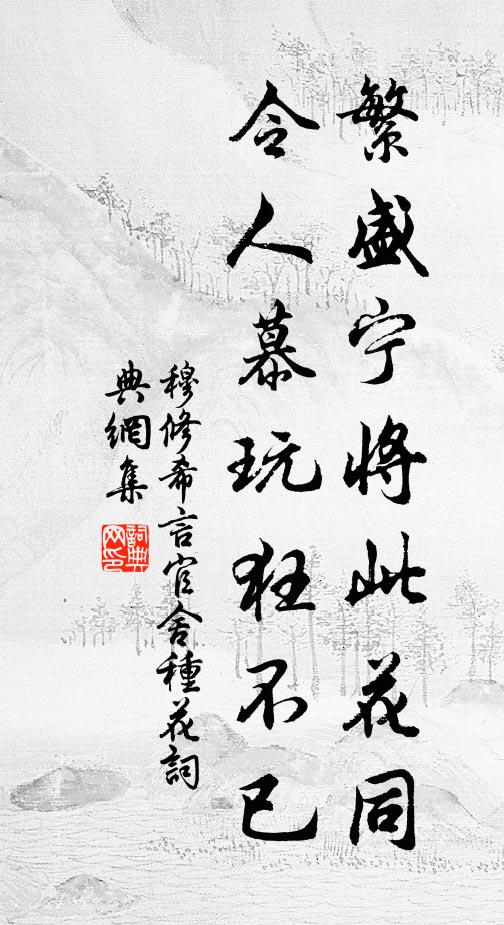 繁盛宁將此花同
令人慕玩狂不已
穆修希言官舍種花詞
典網集
詞典網印